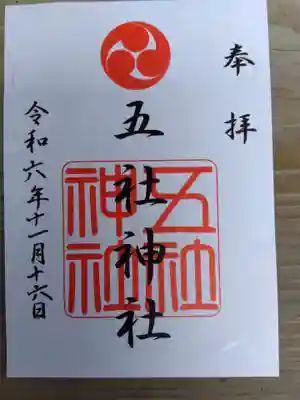 奉拝
五社神社
五社
神社
令和六年十一月十六日